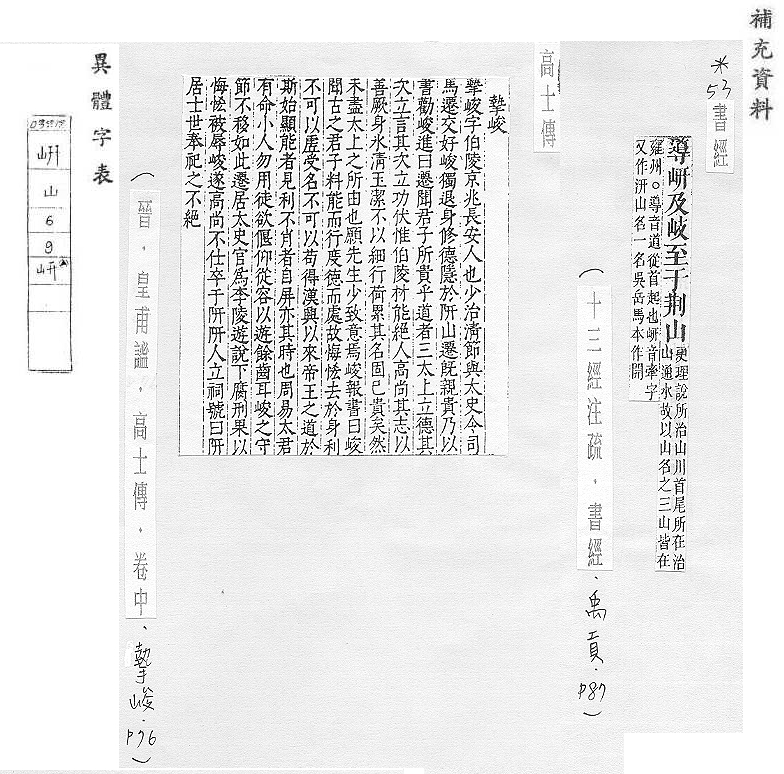 補充資料
*53 書經
導岍及岐至于荆山
更理說所治山川首尾所在治
山通水故以山名之三山皆在
雍州。導音道從首起也岍音牽字
又作汧山名一名吳岳馬本作開
(十三經注疏.書經.禹貢.p87)
高士傳
摯峻
摯峻字伯陵京兆長安人也少治清節與太史令司
馬遷交好峻獨退身修德隱於阱山遷既親貴乃以
書勸峻進曰遷聞君子所貴乎道者三太上立德其
次立言其次立功伏惟伯陵材能絕人高尚其志以
善厥身氷清玉潔不以細行荷累其名固已貴矣然
未盡太上之所由也願先生少致意焉峻報書曰峻
聞古之君子料能而行度德而處故悔恡去於身利
不可以虛受名不可以苟得漢興以來帝王之道於
斯始顯能者見利不肖者自屏亦其時也周易太君
有命小人勿用徒欲偃仰從容以遊餘齒耳峻之守
節不移如此遷居太史官爲李陵遊說下腐刑果以
悔恡被辱峻遂高尚不仕卒于阱阱人立祠號曰阱
居士世奉祀之不絕
(晉.皇甫謐.高士傳.卷中.摯峻.p76)
異體字表
岍
山
6
9
岍